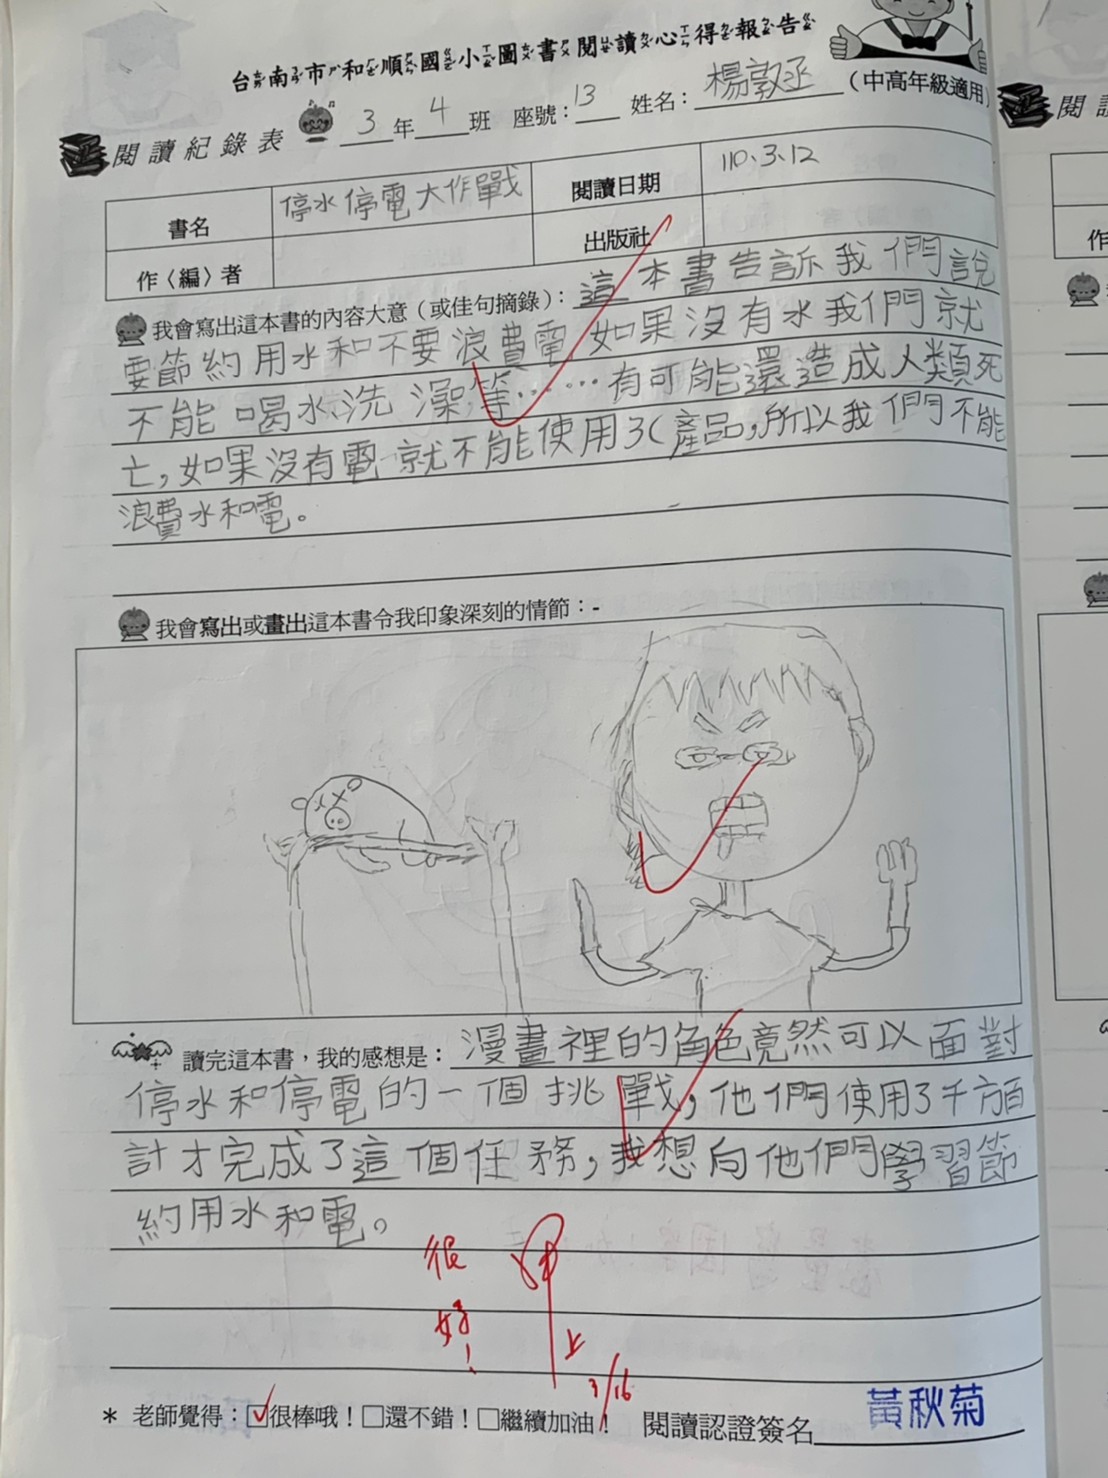 台南市和順國小圖書閱讀心得報告
閱讀紀錄表 3年4班 座號:13 姓名:楊敦丞 (中高年級適用)
書名 停水停電大作戰 閱讀日期 110.3.12
作〈編〉者 出版社
我會寫出這本書的內容大意(或佳句摘錄):這本書告訴我們說
要節約用水和不要浪費電,如果沒有水我們就
不能喝水、洗澡等……有可能還造成人類死
亡,如果沒有電就不能使用3C產品,所以我們不能
浪費水和電。
我會寫出或畫出這本書令我印象深刻的情節:-
讀完這本書,我的感想是:漫畫裡的角色竟然可以面對
停水和停電的一個挑戰,他們使用了千方百
計才完成了這個任務,我想向他們學習節
約用水和電。
很
好!
上
3/16
* 老師覺得:☑很棒哦!□還不錯!□繼續加油! 閱讀認證簽名 黃秋菊
閱
作